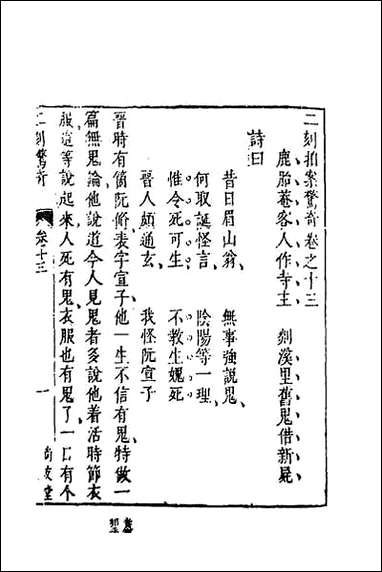 二刻拍案驚奇卷之十三
鹿胎菴客人作寺主　剡溪里舊鬼借新屍
詩曰
昔日眉山翁、　無事強說鬼、
何取誕怪言、　陰陽等一理、
惟令死可生　不教生媿死
晉人頗通玄、　我怪阮宣子
晉時有箇阮脩表字宣子他一生不信有鬼特做一
篇無鬼論他說道今人見鬼者多說他着活時節衣
服這等說起來人死有鬼衣服也有鬼了一日有个
二刻驚奇　卷十三　一　尚友堂